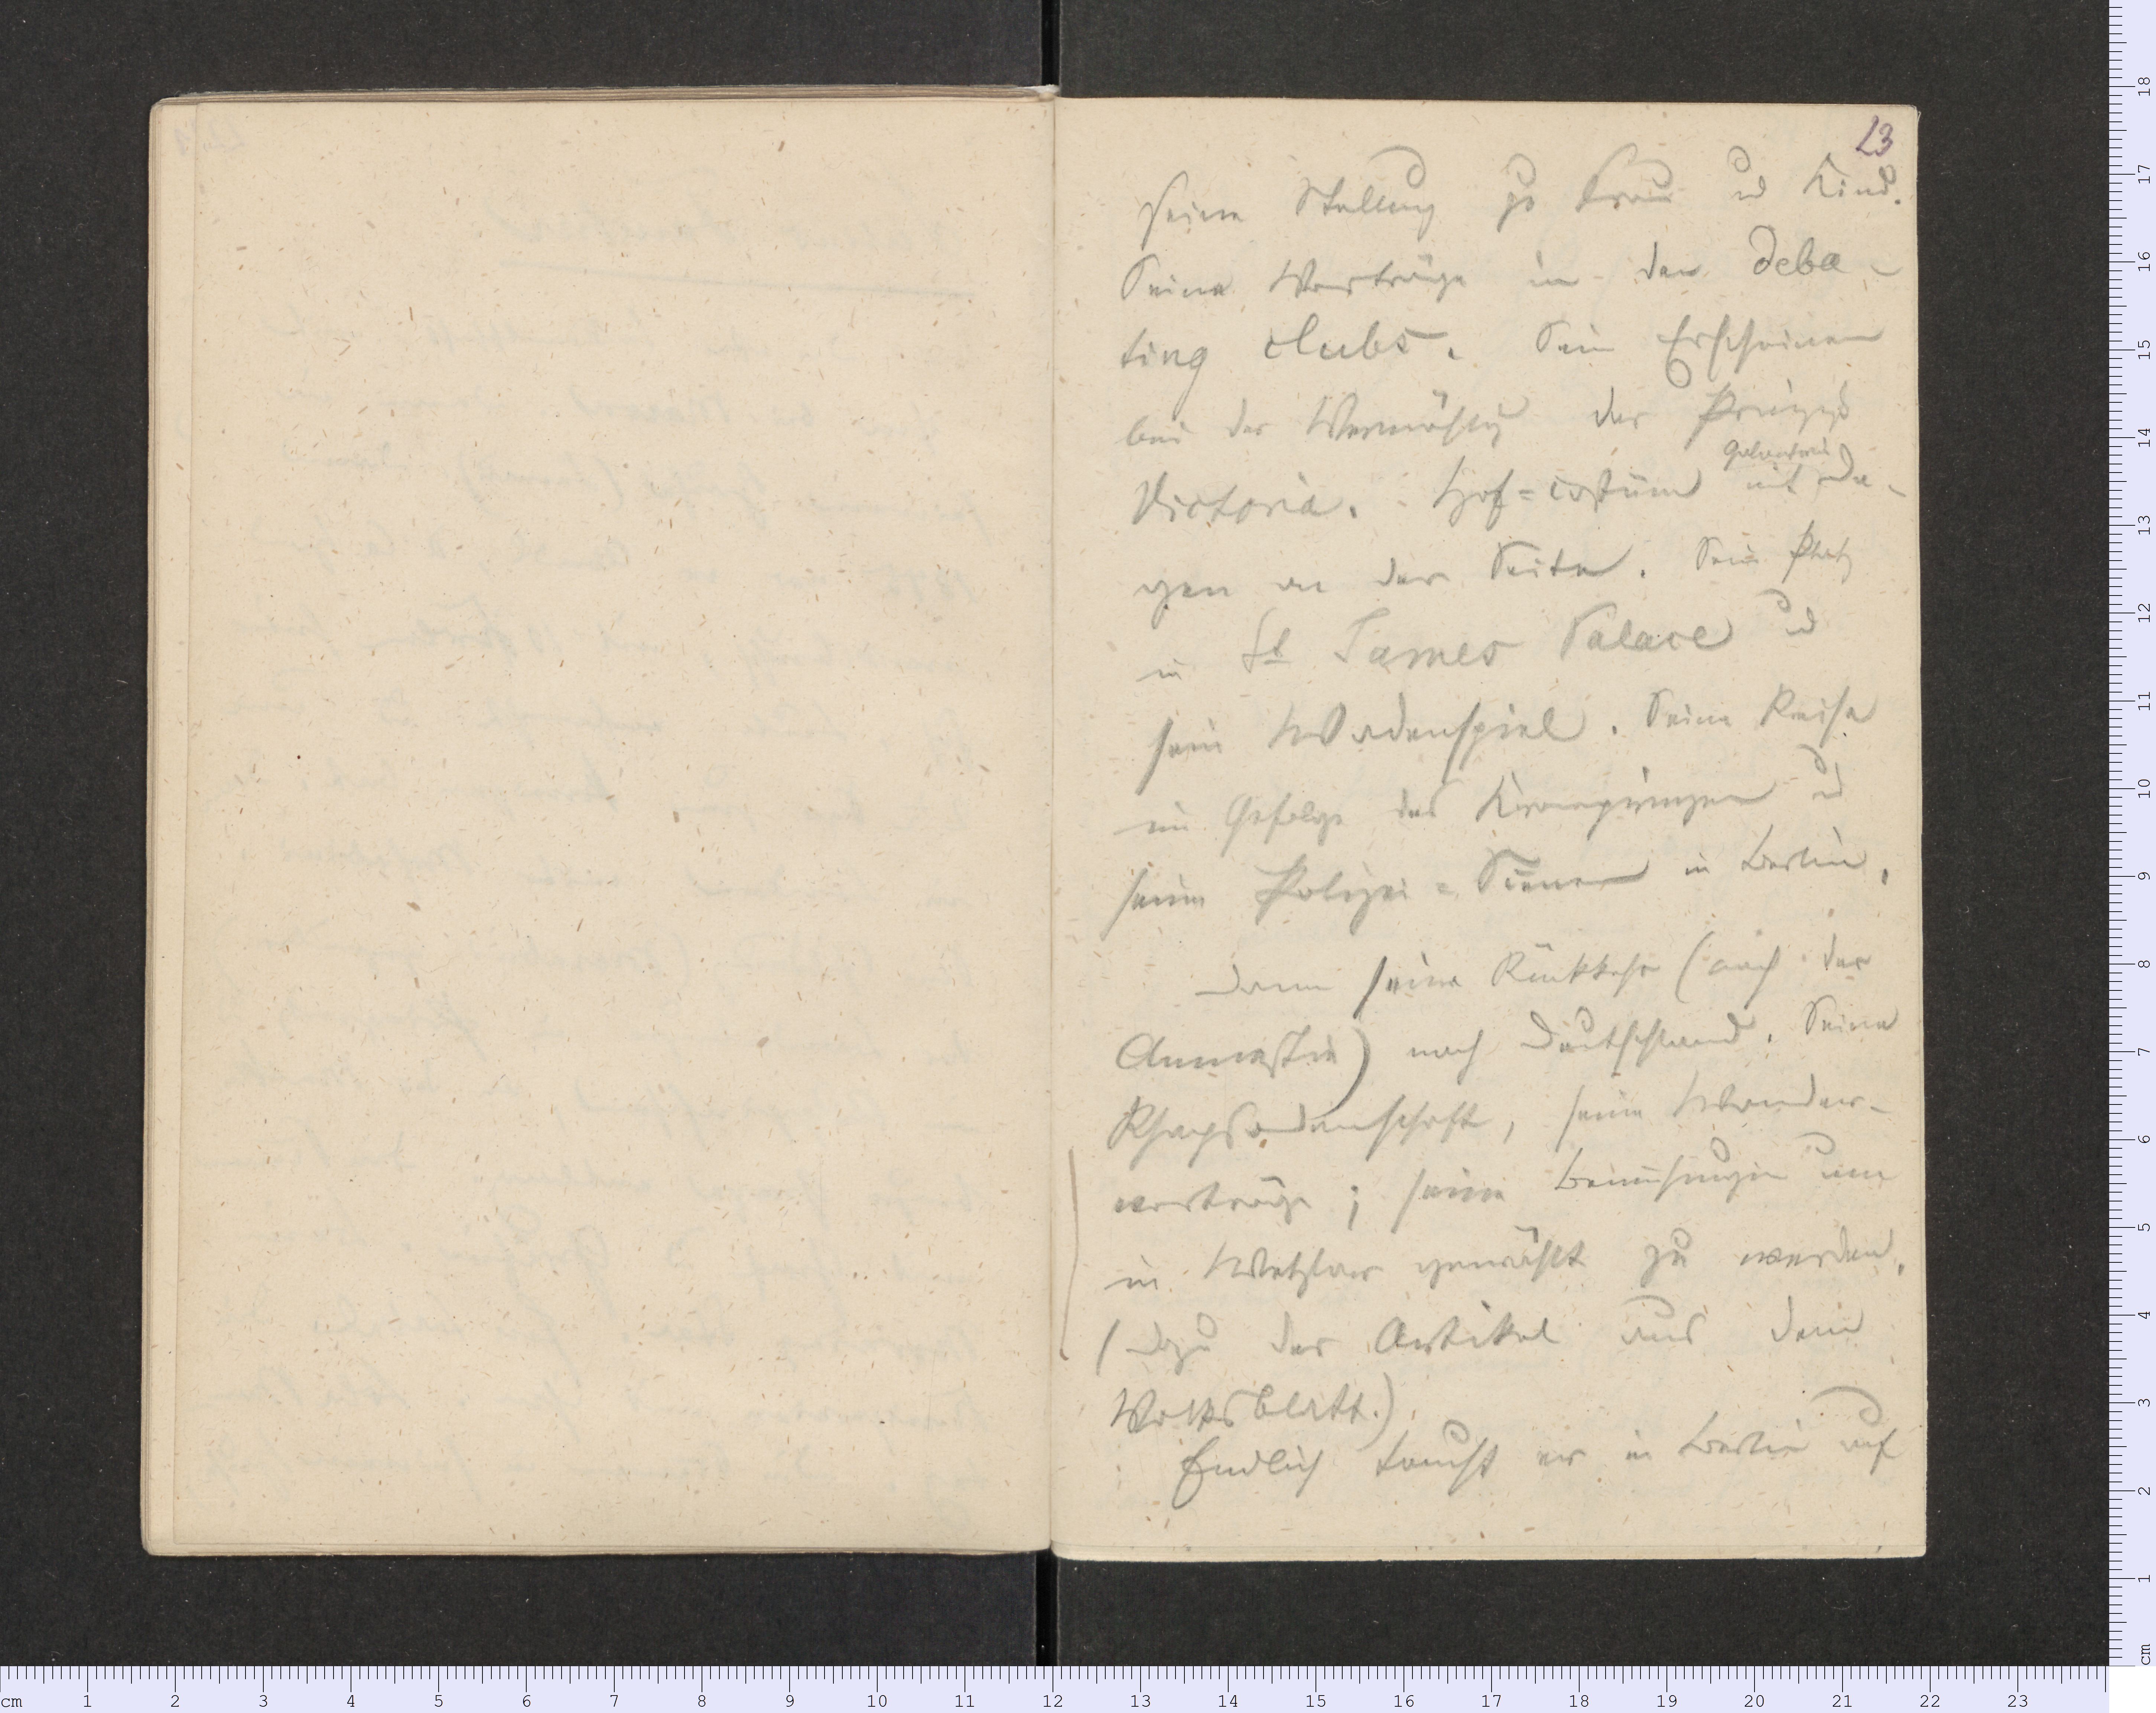 23
Seine Stellung zu Frau u Kind.
Seine Vorträge in den Deba-
ting Clubs. Sein Erscheinen
bei der Vermählg der Prinzeß
Victoria. Hof=Costüm mit Galanterie De-
gen an der Seite. Sein Platz
in St James Palace u
sein Wadenspiel. Seine Reise
im Gefolge des Kronprinzen u
seine Polizei=Scenen in Berlin.
Dann seine Rückkehr (nach der
Amnestie) nach Deutschland. Seine
Rhapsodenschaft, seine Wander-
vorträge; seine Bemühungen um
in Wetzlar gewählt zu werden.
(Dazu der Artikel aus dem
Volksblatt.)
Endlich taucht er in Berlin auf